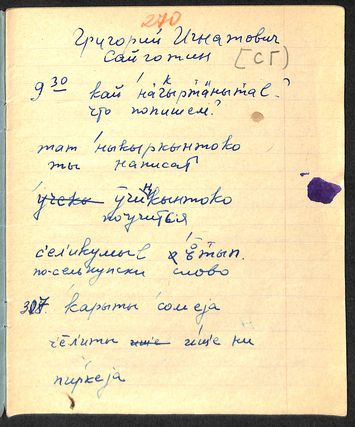 240
Григорий Игнатович
Сайготин [СГ]
9 30 кай на́гыртӓнытал?
что попишем?
тат ныкыркынтоко
ты написат
учекы ӱчикынтоко
поучиться
сёликумыl ӭ̄тып.
по-селькупски слово
307. карыты сомеја
чёлиты ище ище ни
пиркеја